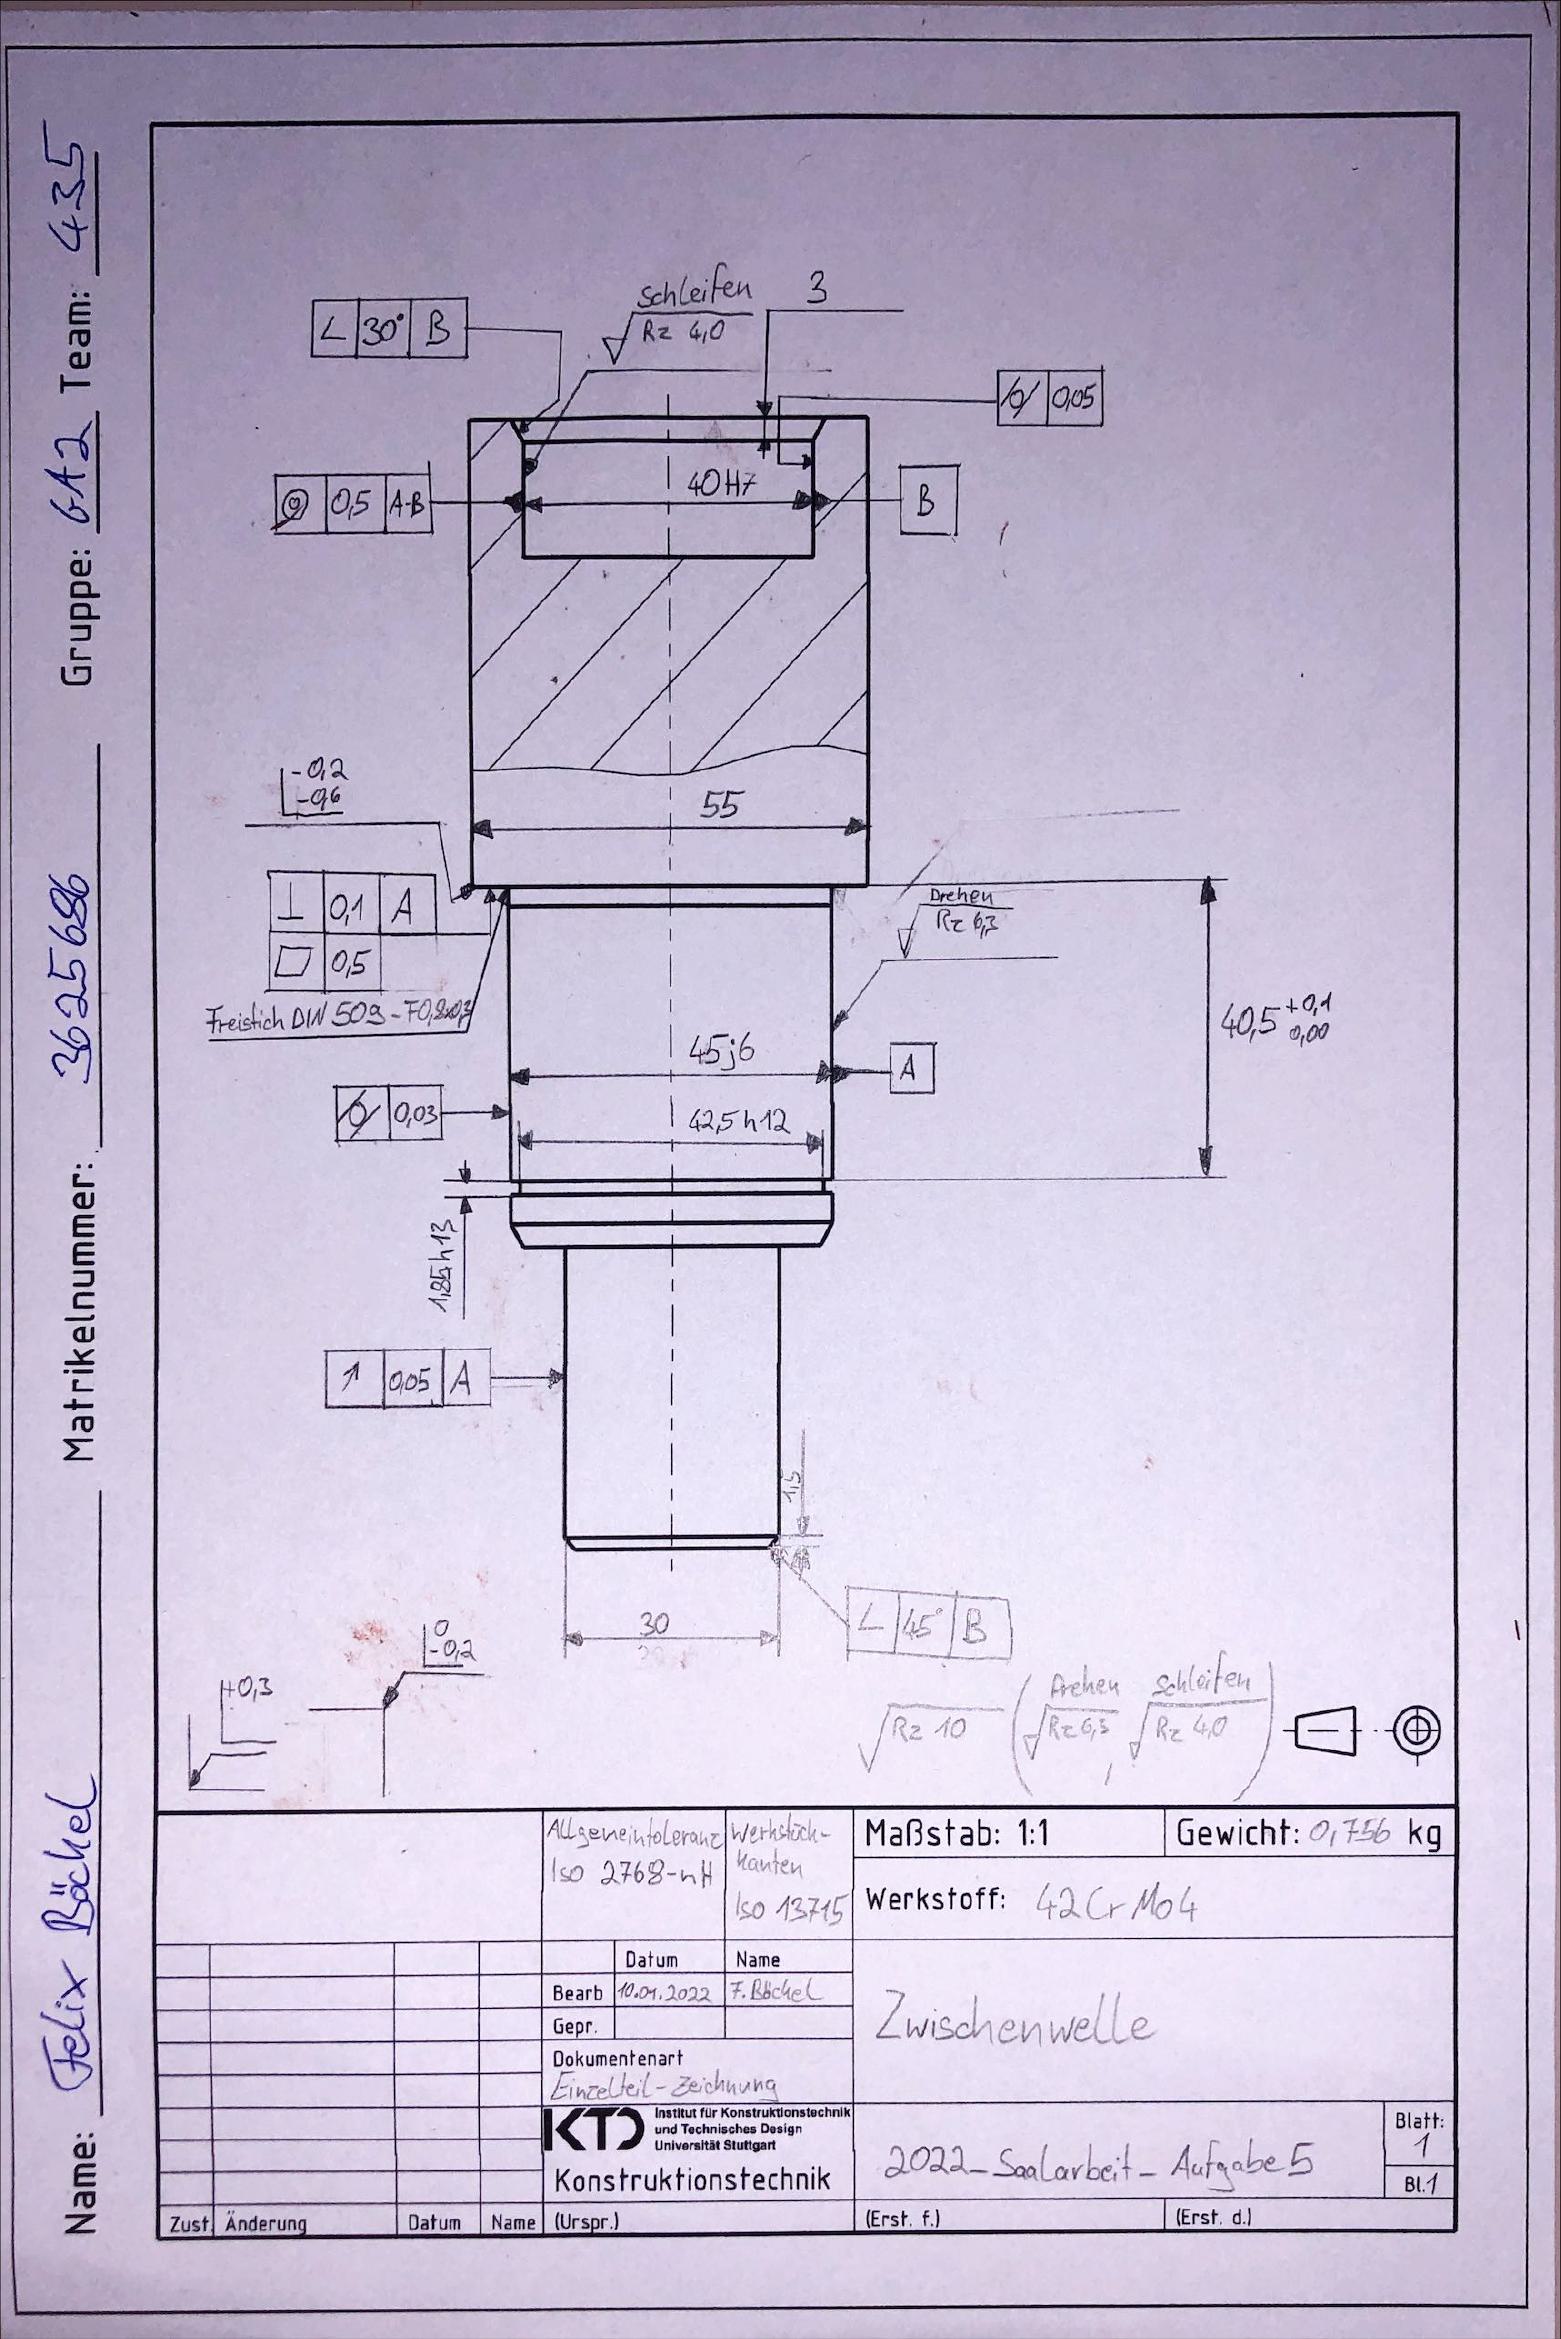 Name: Felix Böckel Matrikelnummer: 3625686 Gruppe: GA2 Team: 435
Schleifen
Rz 4,0
3
∠ 30° B
⌭ 0,05
◎ 0,5 A-B
40H7
B
-0,2
-0,6
55
⊥ 0,1 A
⏥ 0,5
Freistich DIN 509 - F0,8x0,3
Drehen
Rz 6,3
40,5 +0,1
0,00
45j6
A
⌭ 0,03
42,5 h12
1,85 h13
↗ 0,05 A
1,5
30
∠ 45° B
0
-0,2
+0,3
Rz 10 ( Drehen Rz 6,3 , Schleifen Rz 4,0 )
Allgemeintoleranz
Iso 2768-mH
Werkstück-
kanten
Iso 13715
Maßstab: 1:1
Gewicht: 0,756 kg
Werkstoff: 42CrMo4
Datum Name
Bearb 10.01.2022 F. Böckel
Gepr.
Zwischenwelle
Dokumentenart
Einzelteil-Zeichnung
KTD Institut für Konstruktionstechnik
und Technisches Design
Universität Stuttgart
Konstruktionstechnik
2022_Saalarbeit_Aufgabe5
Blatt:
1
Bl.1
Zust. Änderung Datum Name (Urspr.) (Erst. f.) (Erst. d.)